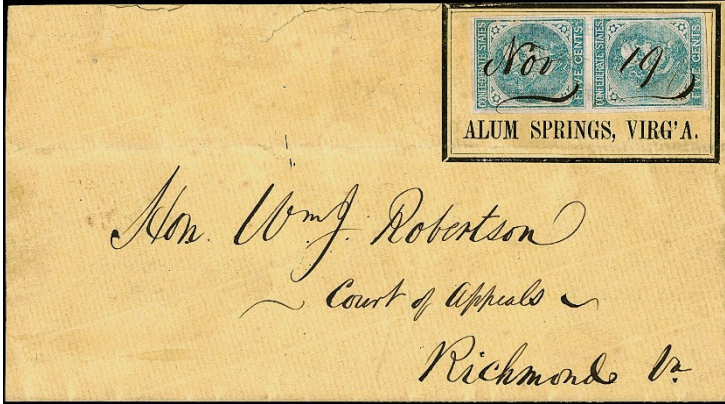 CONFEDERATE STATES FIVE CENTS CONFEDERATE STATES FIVE CENTS
Nov 19
ALUM SPRINGS, VIRG'A.
Hon. Wm J. Robertson
Court of Appeals
Richmond Va